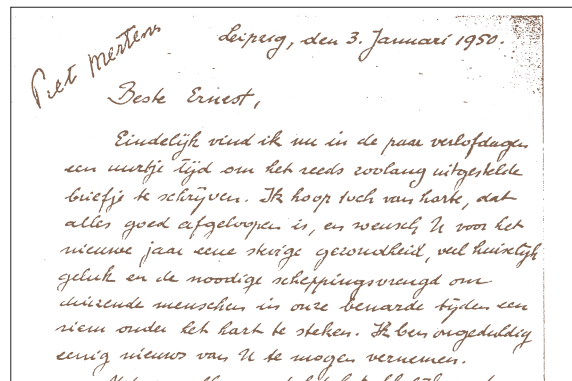 Piet Mertens
Leipzig, den 3. Januari 1950.
Beste Ernest,
Eindelijk vind ik nu in de paar verlofdagen
een uurtje tijd om het reeds zoolang uitgestelde
briefje te schrijven. Ik hoop toch van harte, dat
alles goed afgeloopen is, en wensch U voor het
nieuwe jaar eene stevige gezondheid, veel huiselijk
geluk en de noodige scheppingsvreugd om
duizende menschen in onze benarde tijden een
riem onder het hart te steken. Ik ben ongeduldig
eenig nieuws van U te mogen vernemen.